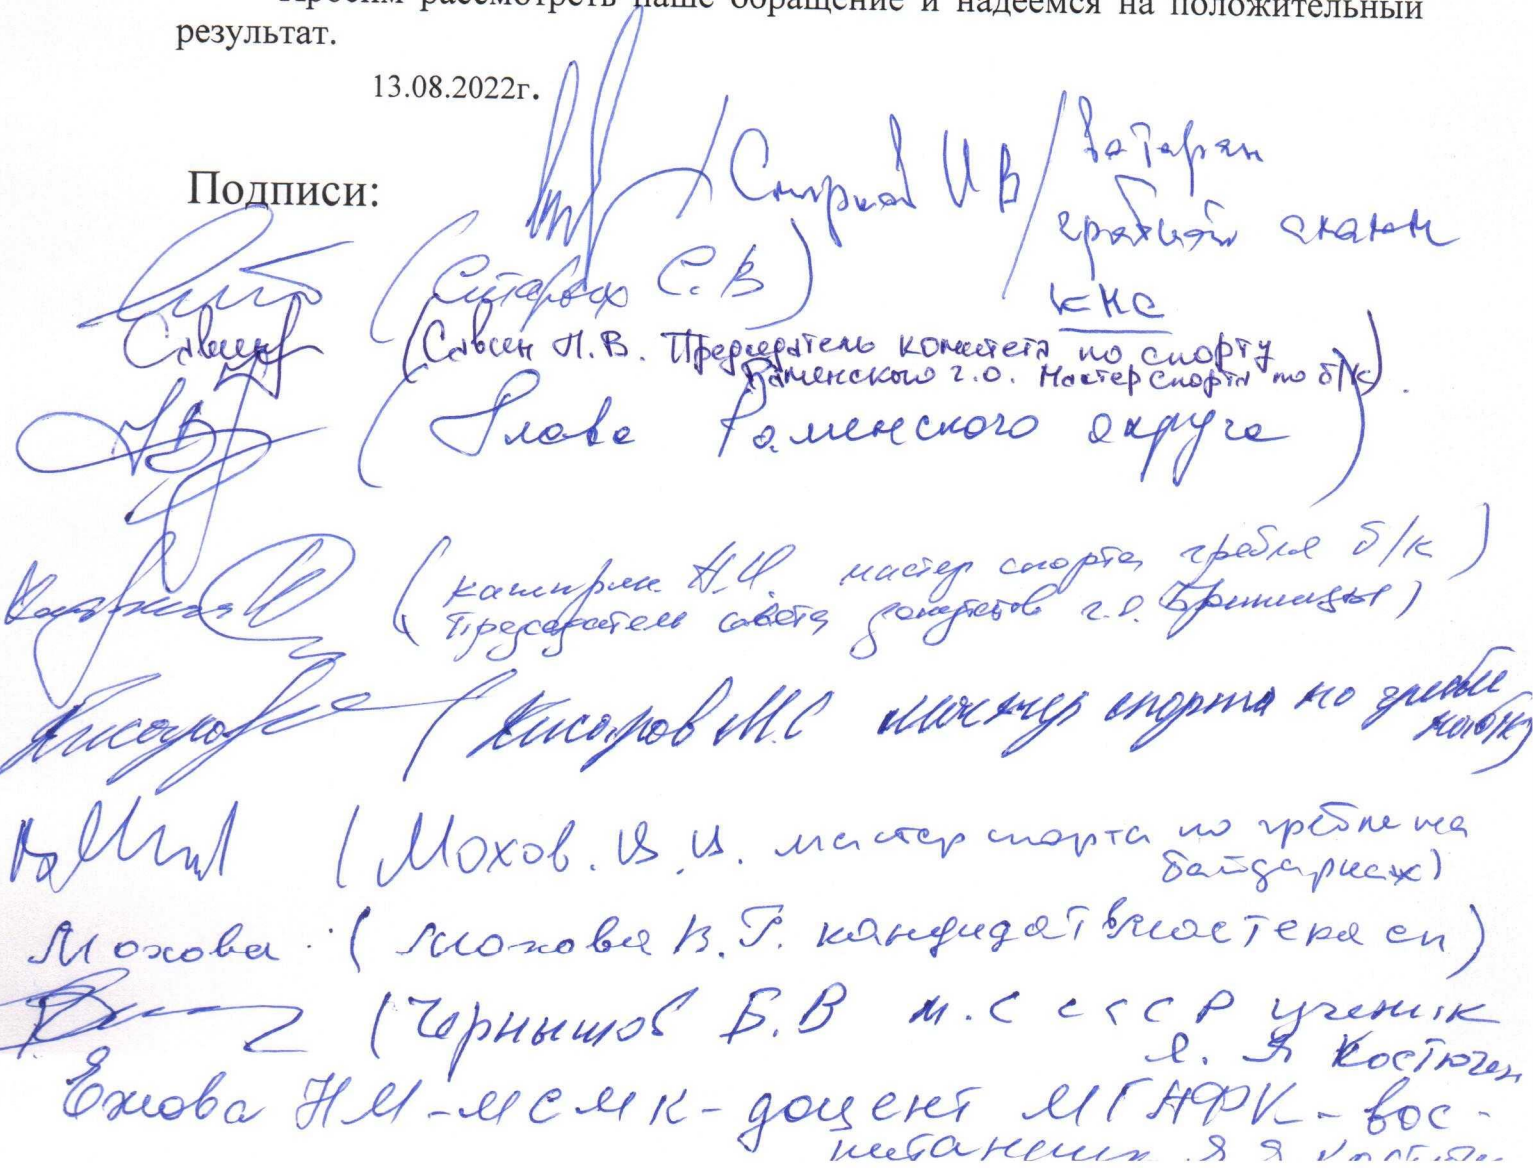 Просим рассмотреть наше обращение и надеемся на положительный
результат.
13.08.2022г.
Подписи:
И В / Ветеран
гребной
КМС
(Старых С.В)
Савин (Савин Н.В. Председатель комитета по спорту
Раменского г.о. Мастер спорта по б/к).
(Глава Раменского округа)
(Каширин Н.И. мастер спорта гребля б/к)
Председатель совета депутатов г.о. Бронницы)
(Кисаров М.С мастер спорта по гребле
(Мохов. В.И. мастер спорта по гребле на
байдарках)
Мохова (Мохова В.Г. кандидат в мастера сп)
(Чернышов Б.В м.с СССР ученик
Я. Я Костючен
Ежова НМ-МСМК-доцент МГАФК-вос-
питанник Я Я